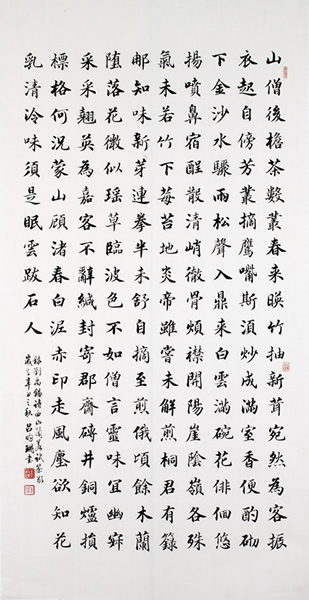 山僧後檐茶數叢春來映竹抽新茸宛然為客振
衣起自傍芳叢摘鷹嘴斯須炒成滿室香便酌砌
下金沙水驟雨松聲入鼎來白雲滿碗花徘徊悠
揚噴鼻宿酲散清峭徹骨煩襟開陽崖陰嶺各殊
氣未若竹下莓苔地炎帝雖嘗未解煎桐君有籙
那知味新芽連拳半未舒自摘至煎俄頃餘木蘭
墮落花微似瑤草臨波色不如僧言靈味宜幽寂
采采翹英為嘉客不辭緘封寄郡齋磚井銅爐損
標格何況蒙山顧渚春白泥赤印走風塵欲知花
乳清泠味須是眠雲跂石人
錄劉禹錫詩西山蘭若試茶歌